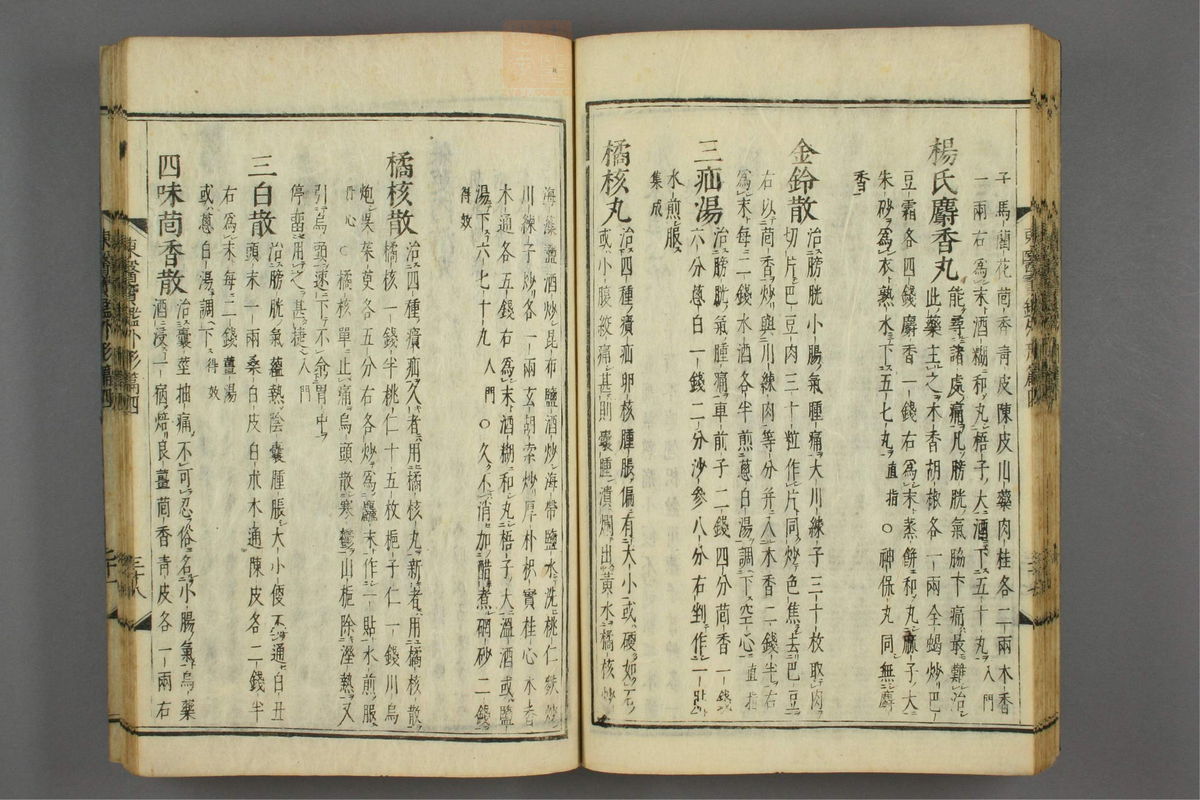 子馬藺花茴香青皮陳皮山藥肉桂各二兩木香
一兩右爲末酒糊和丸梧子大酒下五十丸入門
楊氏麝香丸能尋諸處痛凡膀胱氣脇下痛最難治
此藥主之木香胡椒各一兩全蝎炒巴
豆霜各四錢麝香一錢右爲末蒸餅和丸麻子大
朱砂爲衣熟水下五七丸直指○神保丸同無麝
香
金鈴散治膀胱小腸氣腫痛大川練子三十枚取肉
切片巴豆肉三十粒作片同炒色焦去巴豆
右以茴香炒與川練肉等分幷入木香二錢半右
爲末每二錢水酒各半煎葱白湯調下空心直指
三疝湯治膀胱氣腫痛車前子二錢四分茴香一錢
六分葱白一錢二分沙參八分右剉作一貼
水煎服
集成
橘核丸治四種㿗疝卵核腫脹偏有大小或硬如石
或小腹絞痛甚則囊腫潰爛出黃水橘核炒
海藻鹽酒炒昆布鹽酒炒海帶鹽水洗桃仁麩炒
川練子炒各一兩玄胡索炒厚朴枳實桂心木香
木通各五錢右爲末酒糊和丸梧子大溫酒或鹽
湯下六七十丸入門○久不消加醋煮硇砂二錢
得效
橘核散治四種㿗疝久者用橘核丸新者用橘核散
橘核一錢半桃仁十五枚梔子仁一錢川烏
炮吳茱萸各五分右各炒爲麤末作一貼水煎服
丹心○橘核單止痛烏頭散寒鬱山梔除溼熱又
引烏頭速下不令胃中
停留用之甚捷入門
三白散治膀胱氣蘊熱陰囊腫脹大小便不通白丑
頭末一兩桑白皮白朮木通陳皮各二錢半
右爲末每二錢薑湯
或葱白湯調下得效
四味茴香散治囊莖抽痛不可忍俗名小腸氣烏藥
酒浸一宿焙良薑茴香青皮各一兩右
東醫寶鑑外形篇四
三十八